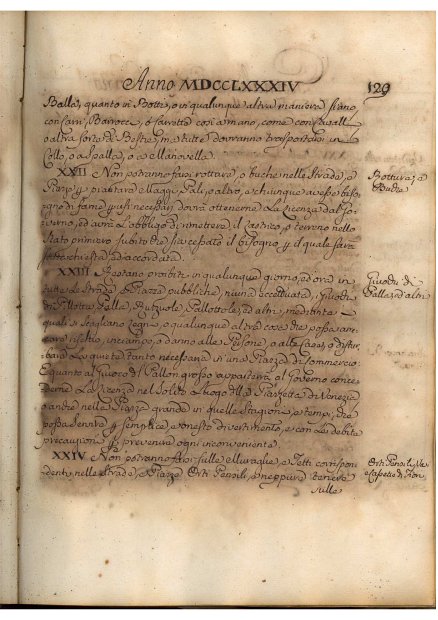 Anno MDCCLXXXIV
129
Balla, quanto in Botti, o in qualunque altra maniera siano,
con Carri, Barocce, o Carrette così a mano, come con Cavalli
o altra sorta di Bestie, ma tutte dovranno trasportarsi in
Collo, o a Spalla, o a Manovella.
XXII Non potranno farsi rotture, o buche nelle Strade, e
Piazze piantare Maggi, Pali, o altro, e chiunque avesse biso,
gno di farne necessità, dovrà ottenerne La Licenza dal Go,
verno, ed avrà L'obbligo di rimettere il Lastrico, o terreno nello
Stato primiero subito che sia cessato il bisogno il quale sarà
stata chiesta ed accordata.
Rottura, o
Buche
XXIII Restano proibiti in qualunque giorno, ed ora in
tutte Le Strade, e Piazze pubbliche, niuna eccettuata, i Giuochi
di Pillotta, Palla, Ruzzole, Pallottole, ed altri, mediante
quali si scagliano Legni, o qualunque altra cosa che possa ar,
recare rischio, inciampo, o danno alle Persone, o alle Case, o distur,
bare La quiete tanto necessaria in una Piazza di Commercio
E quanto al Giuoco del Pallon grosso apparterrà al Governo conce,
derne La Licenza nel solito Luogo della Piazzetta di Venezia
o anche nella Piazza grande in quelle Stagioni, e tempi, che
possa servire semplice, e onesto divertimento, e con Le debite
precauzioni prevenire ogni inconveniente.
Giuochi di
Palla, ed altri
XXIV Non potranno farsi sulle Muraglie, e Tetti corrispon,
denti nelle Strade, e Piazze Orti Pensili, e neppure tenere
sulle
Orti Pensili, Va,
si, e Cassette di Fiori